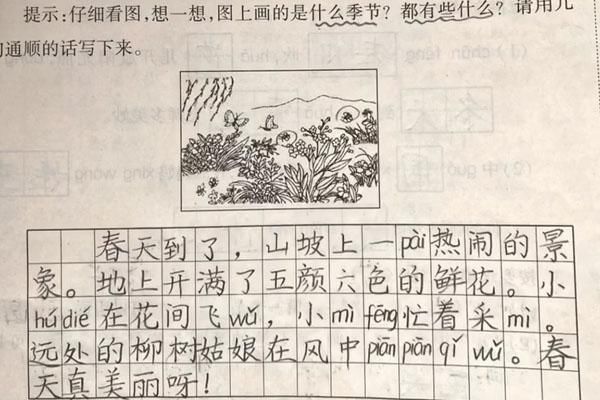 提示:仔细看图,想一想,图上画的是什么季节?都有些什么?请用几
句通顺的话写下来。
春天到了,山坡上一pài热闹的景
象。地上开满了五颜六色的鲜花。小
húdié在花间飞wǔ,小mì fēng忙着采mì。
远处的柳树姑娘在风中piān piān qǐ wǔ。春
天真美丽呀!